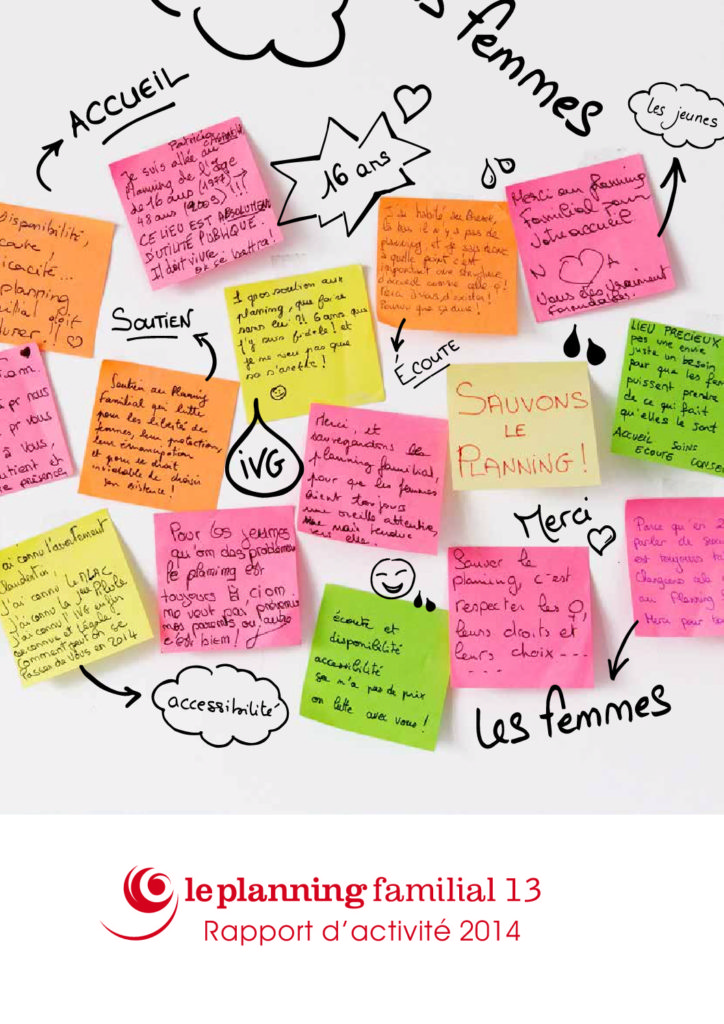 les femmes
ACCUEIL
les jeunes
16 ans
Patricia
Je suis allée au
Planning de l'âge
de 16 ans (1977) à
48 ans (2009) !!!
CE LIEU EST ABSOLUMENT
D'UTILITÉ PUBLIQUE.
Il doit vivre
et se battra !
Disponibilité,
planning
J'ai habité
là bas il n'y a pas de
planning, et je
à quelle point c'est
important
d'accueil comme celle çà !
Merci d'exister !
Pourvu que ça dure !
Merci au planning
Familial pour
votre accueil
Vous êtes vraiment
formidables.
SOUTIEN
1 gros soutien aux
planning, que faire
sans lui ?! 6 ans que
j'y suis fidèle ! et
je ne veux pas que
ça s'arrête !
ÉCOUTE
LIEU PRECIEUX
pas une envie
juste un besoin
pour que les fem
puissent prendre
de ce qui fait
qu'elles le sont
ACCUEIL SOINS
ECOUTE CONSEI
pr nous
pr vous
à vous,
utient et
présence
Soutien au Planning
Familial qui lutte
pour les libertés des
femmes, leur protection,
leur émancipation
et pour le droit
inviolable de choisir
son existence !
iVG
Merci, et
sauvegardons le
planning familial,
pour que les femmes
aient toujours
une oreille attentive,
une main tendue
vers elle.
SAUVONS
LE
PLANNING !
Merci
J'ai connu l'avortement
clandestin,
J'ai connu le MLAC
J'ai connu
J'ai connu l'IVG enfin
reconnue et légale !
Comment peut on se
Passer de vous en 2014
Pour les jeunes
qu'om des problème
le planning est
toujours là
ne vont pas prévenir
nos parents ou autre
c'est bien !
écoute et
disponibilité
accessibilité
ça n'a pas de prix
on lutte avec vous !
Sauver le
planning, c'est
respecter les ♀,
leurs droits et
leurs choix - - -
Parce qu'en
parler de sexu
est toujours ta
Changeons cela
au Planning
Merci pour
accessibilité
Les femmes
le planning familial 13
Rapport d'activité 2014